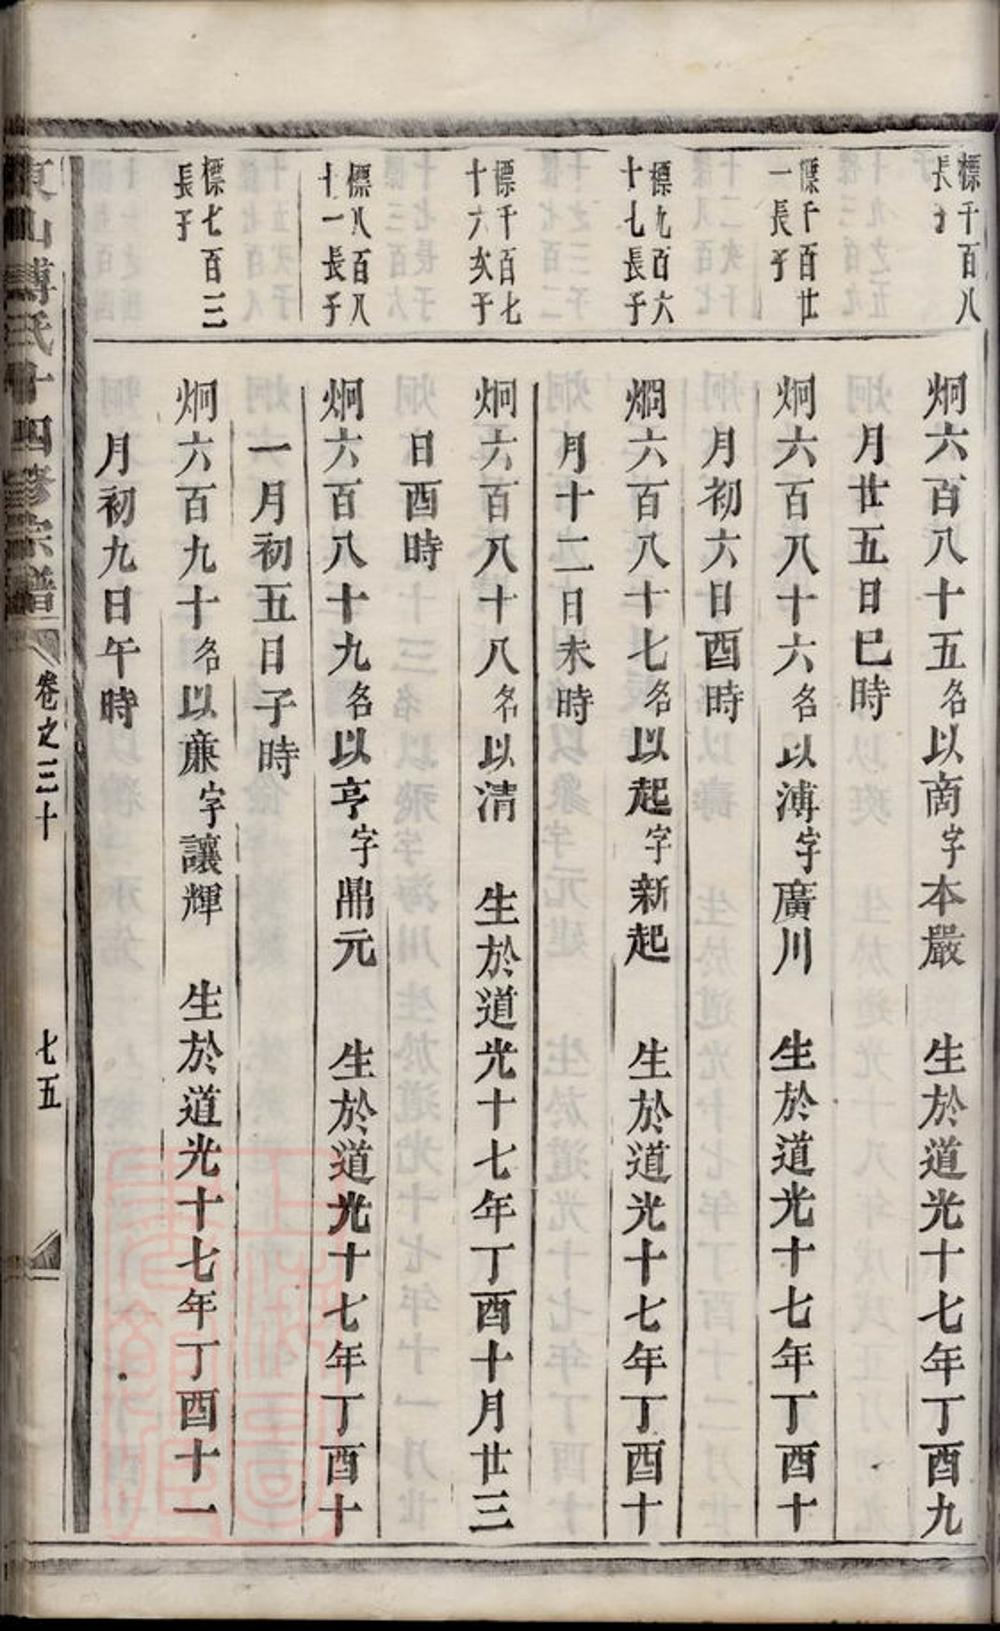 標千百八
長子
炯六百八十五名以商字本嚴 生於道光十七年丁酉九
月廿五日巳時
標千百廿
一長子
炯六百八十六名以溥字廣川 生於道光十七年丁酉十
月初六日酉時
標九百六
十七長子
炯六百八十七名以起字新起 生於道光十七年丁酉十
月十二日未時
標千百七
十六次子
炯六百八十八名以清 生於道光十七年丁酉十月廿三
日酉時
標八百八
十一長子
炯六百八十九名以亨字鼎元 生於道光十七年丁酉十
一月初五日子時
標七百三
長子
炯六百九十名以廉字讓輝 生於道光十七年丁酉十一
月初九日午時
東山傅氏十四修宗譜
卷之三十
七五